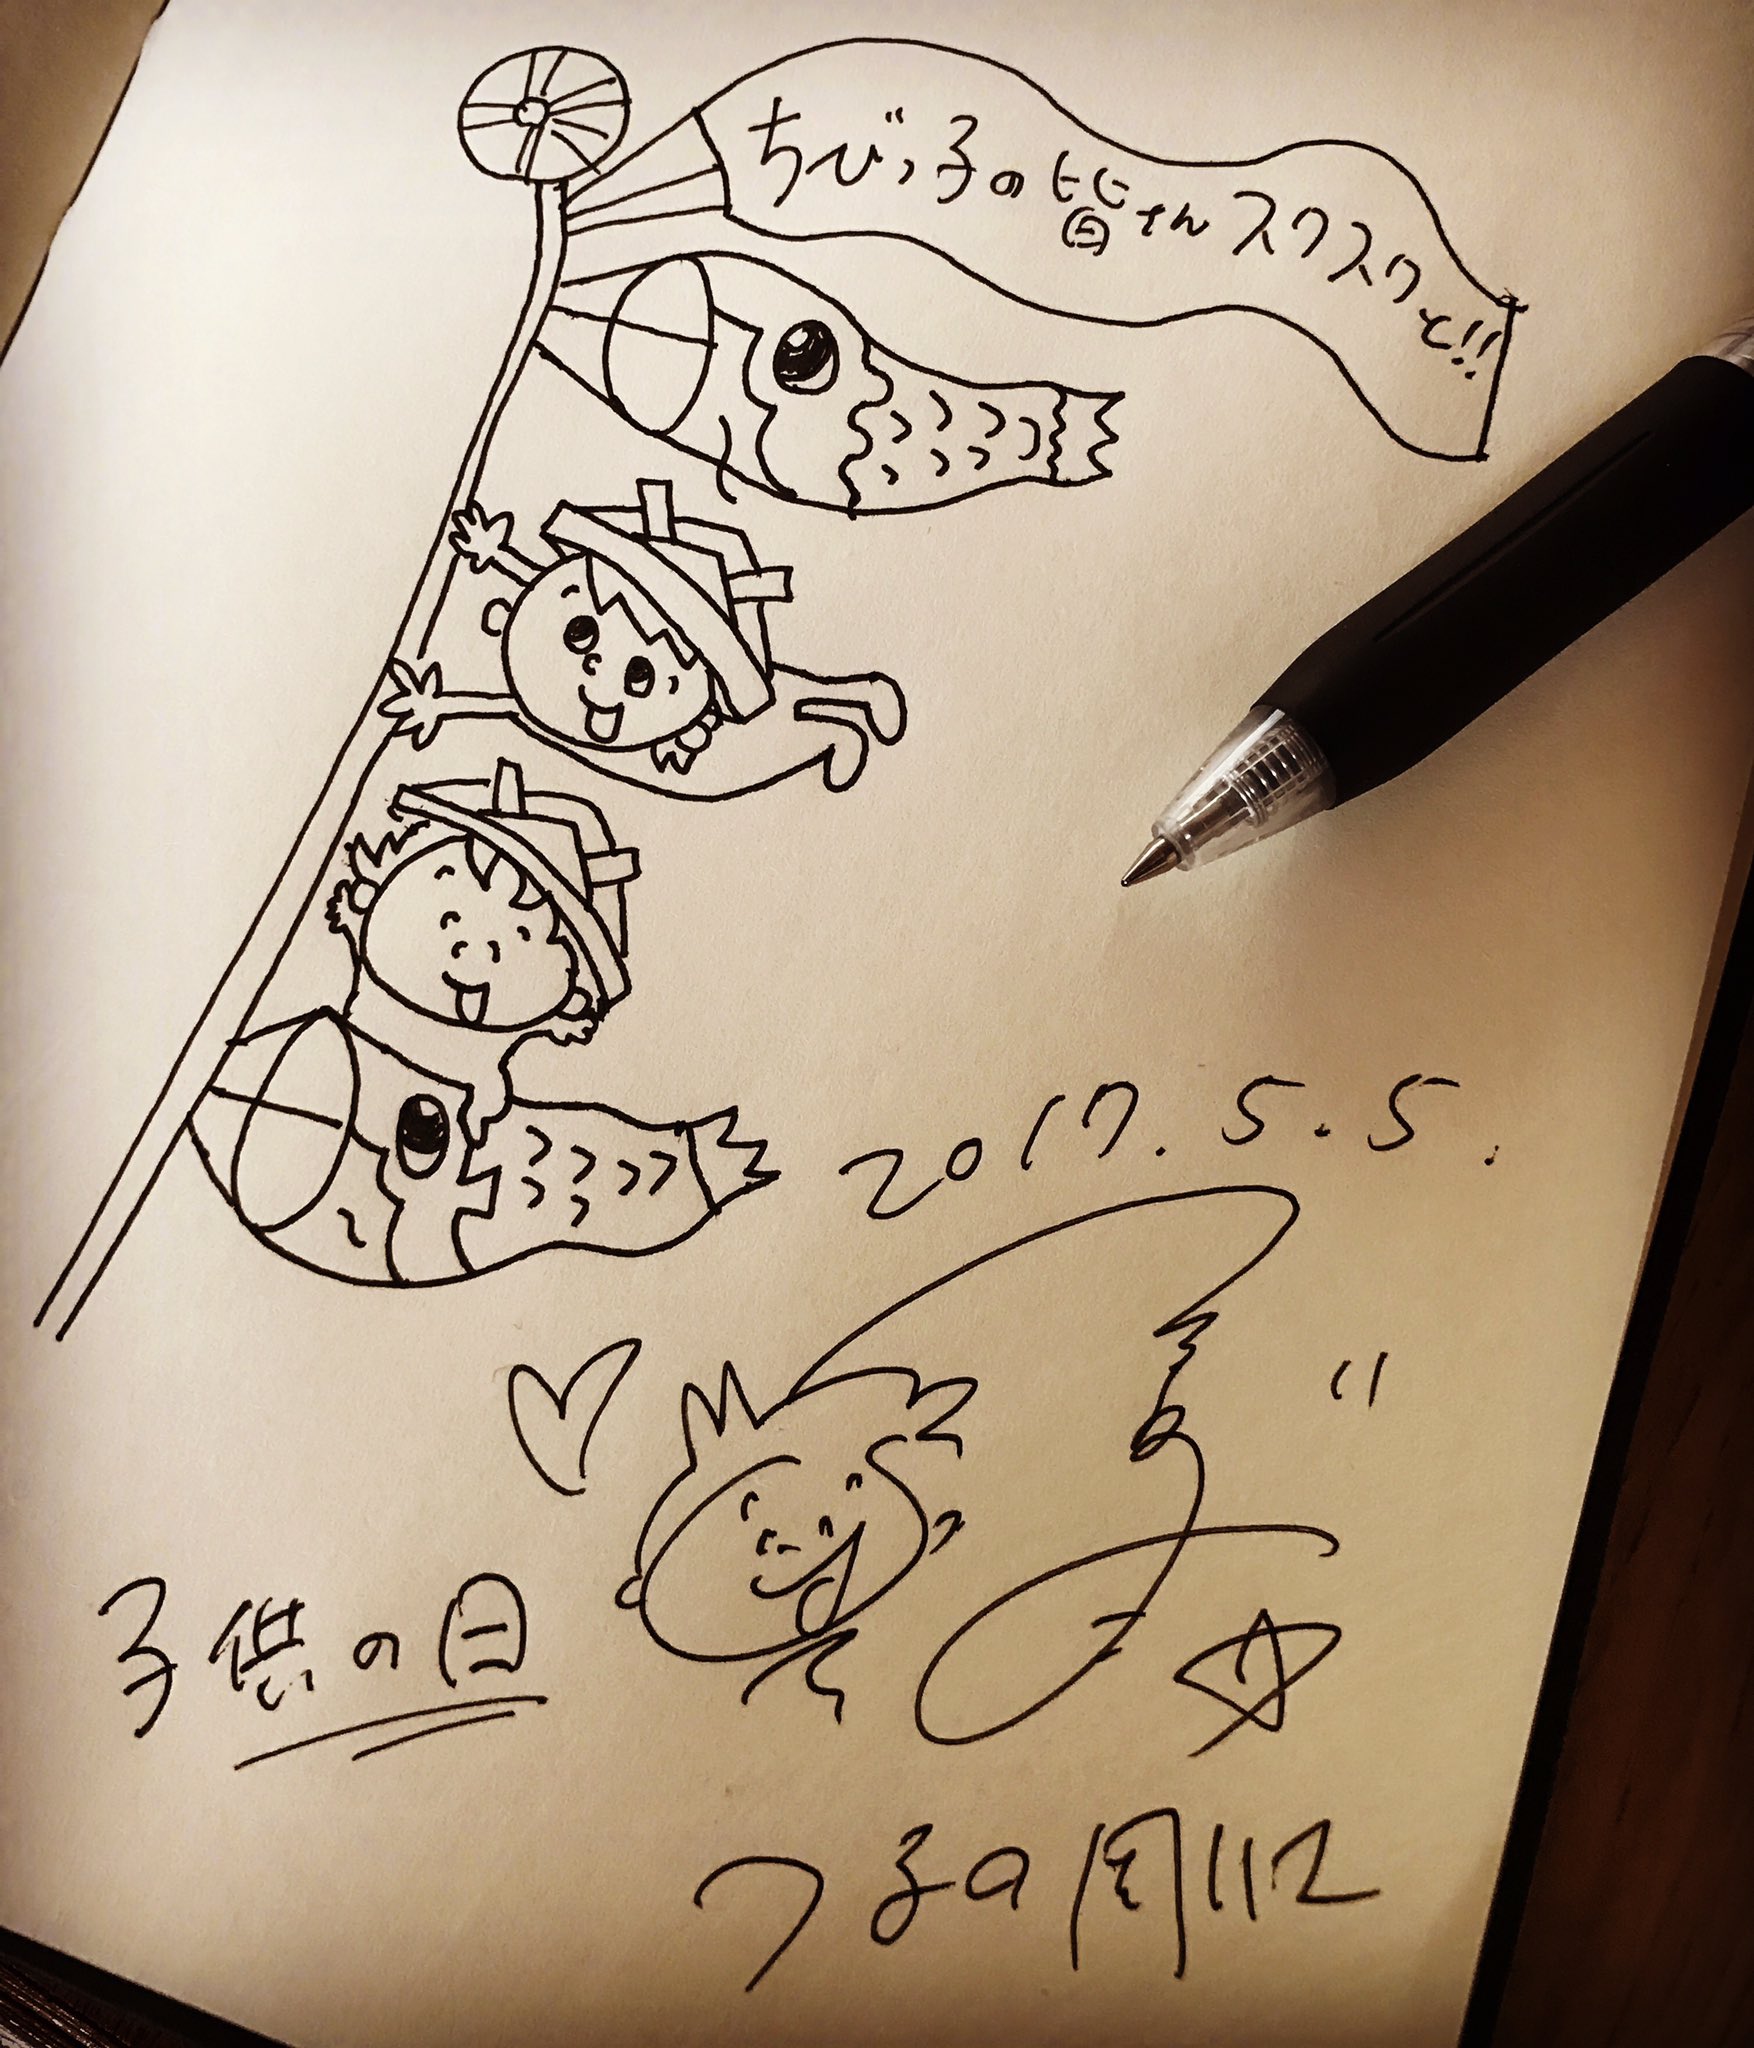 ちびっ子の皆さんスクスクと!!
2017.5.5.
子供の日